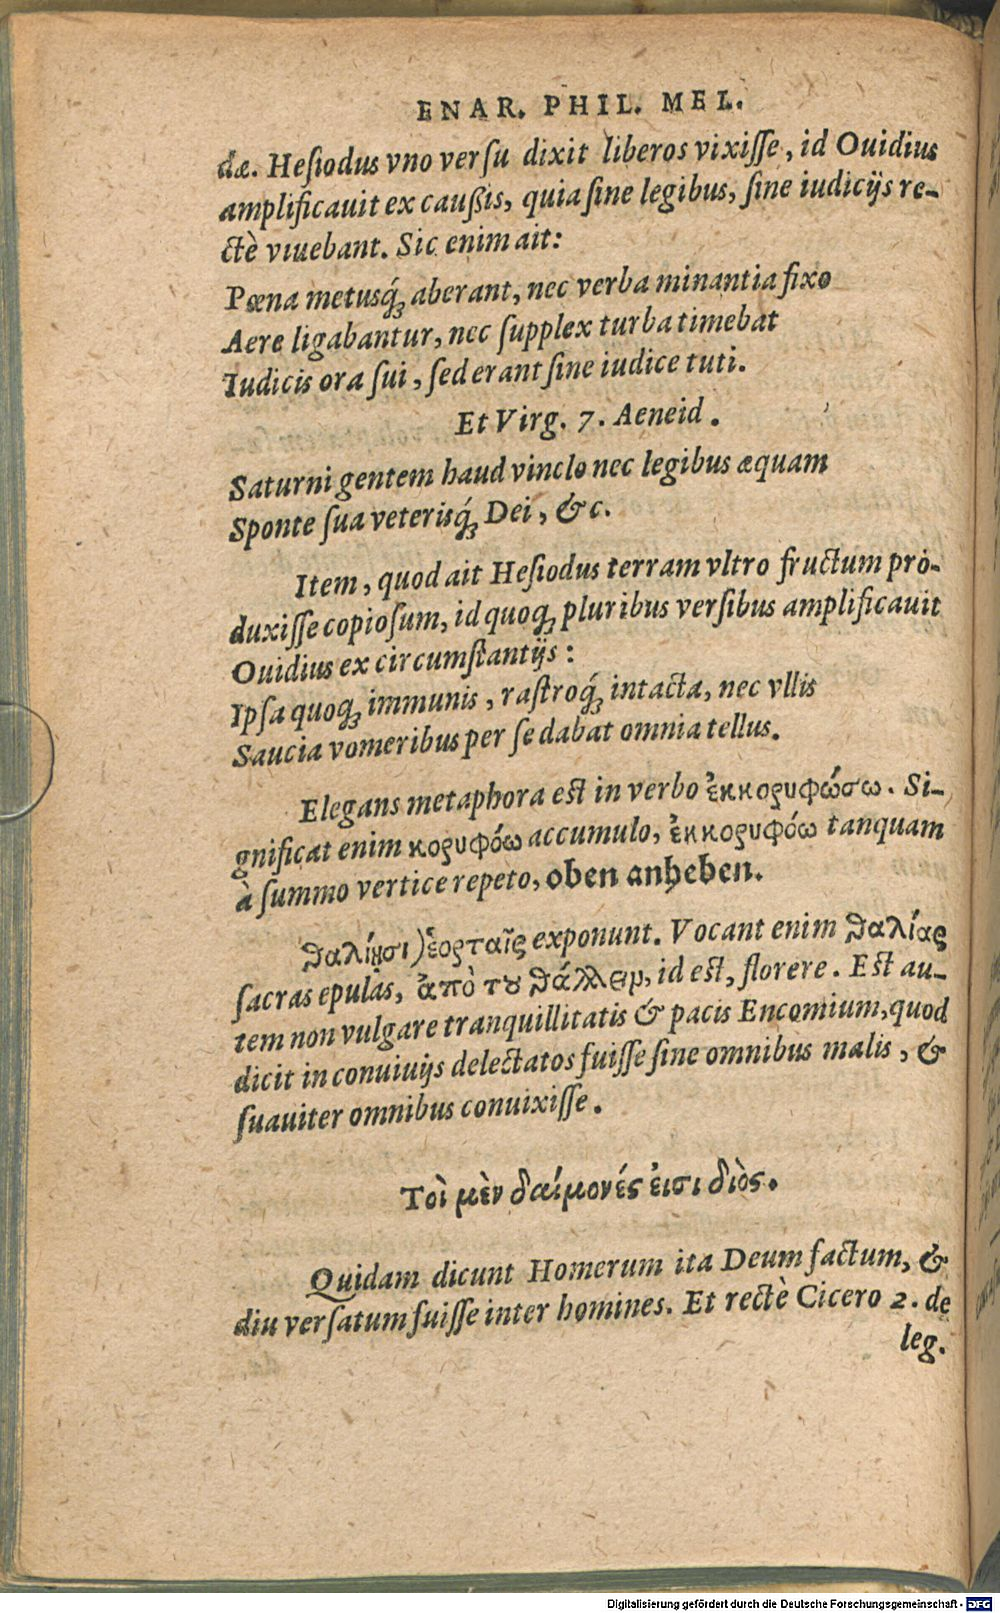 ENAR. PHIL. MEL.
dæ. Hesiodus vno versu dixit liberos vixisse, id Ouidius
amplificauit ex caußis, quia sine legibus, sine iudicijs re-
ctè viuebant. Sic enim ait:
Pœna metusq́; aberant, nec verba minantia fixo
Aere ligabantur, nec supplex turba timebat
Iudicis ora sui, sed erant sine iudice tuti.
Et Virg. 7. Aeneid.
Saturni gentem haud vinclo nec legibus æquam
Sponte sua veterisq́; Dei, &c.
Item, quod ait Hesiodus terram vltro fructum pro-
duxisse copiosum, id quoq; pluribus versibus amplificauit
Ouidius ex circumstantijs:
Ipsa quoq; immunis, rastroq́; intacta, nec vllis
Saucia vomeribus per se dabat omnia tellus.
Elegans metaphora est in verbo ἐκκορυφώσω. Si-
gnificat enim κορυφόω accumulo, ἐκκορυφόω tanquam
à summo vertice repeto, oben anheben.
θαλίῃσι) ἑορταῖς exponunt. Vocant enim θαλίας
sacras epulas, ἀπὸ τοῦ θάλλειν, id est, florere. Est au-
tem non vulgare tranquillitatis & pacis Encomium, quod
dicit in conuiuijs delectatos fuisse sine omnibus malis, &
suauiter omnibus conuixisse.
Τοὶ μὲν δαίμονές ἐισι διὸς.
Quidam dicunt Homerum ita Deum factum, &
diu versatum fuisse inter homines. Et rectè Cicero 2. de
leg.
Digitalisierung gefördert durch die Deutsche Forschungsgemeinschaft - DFG